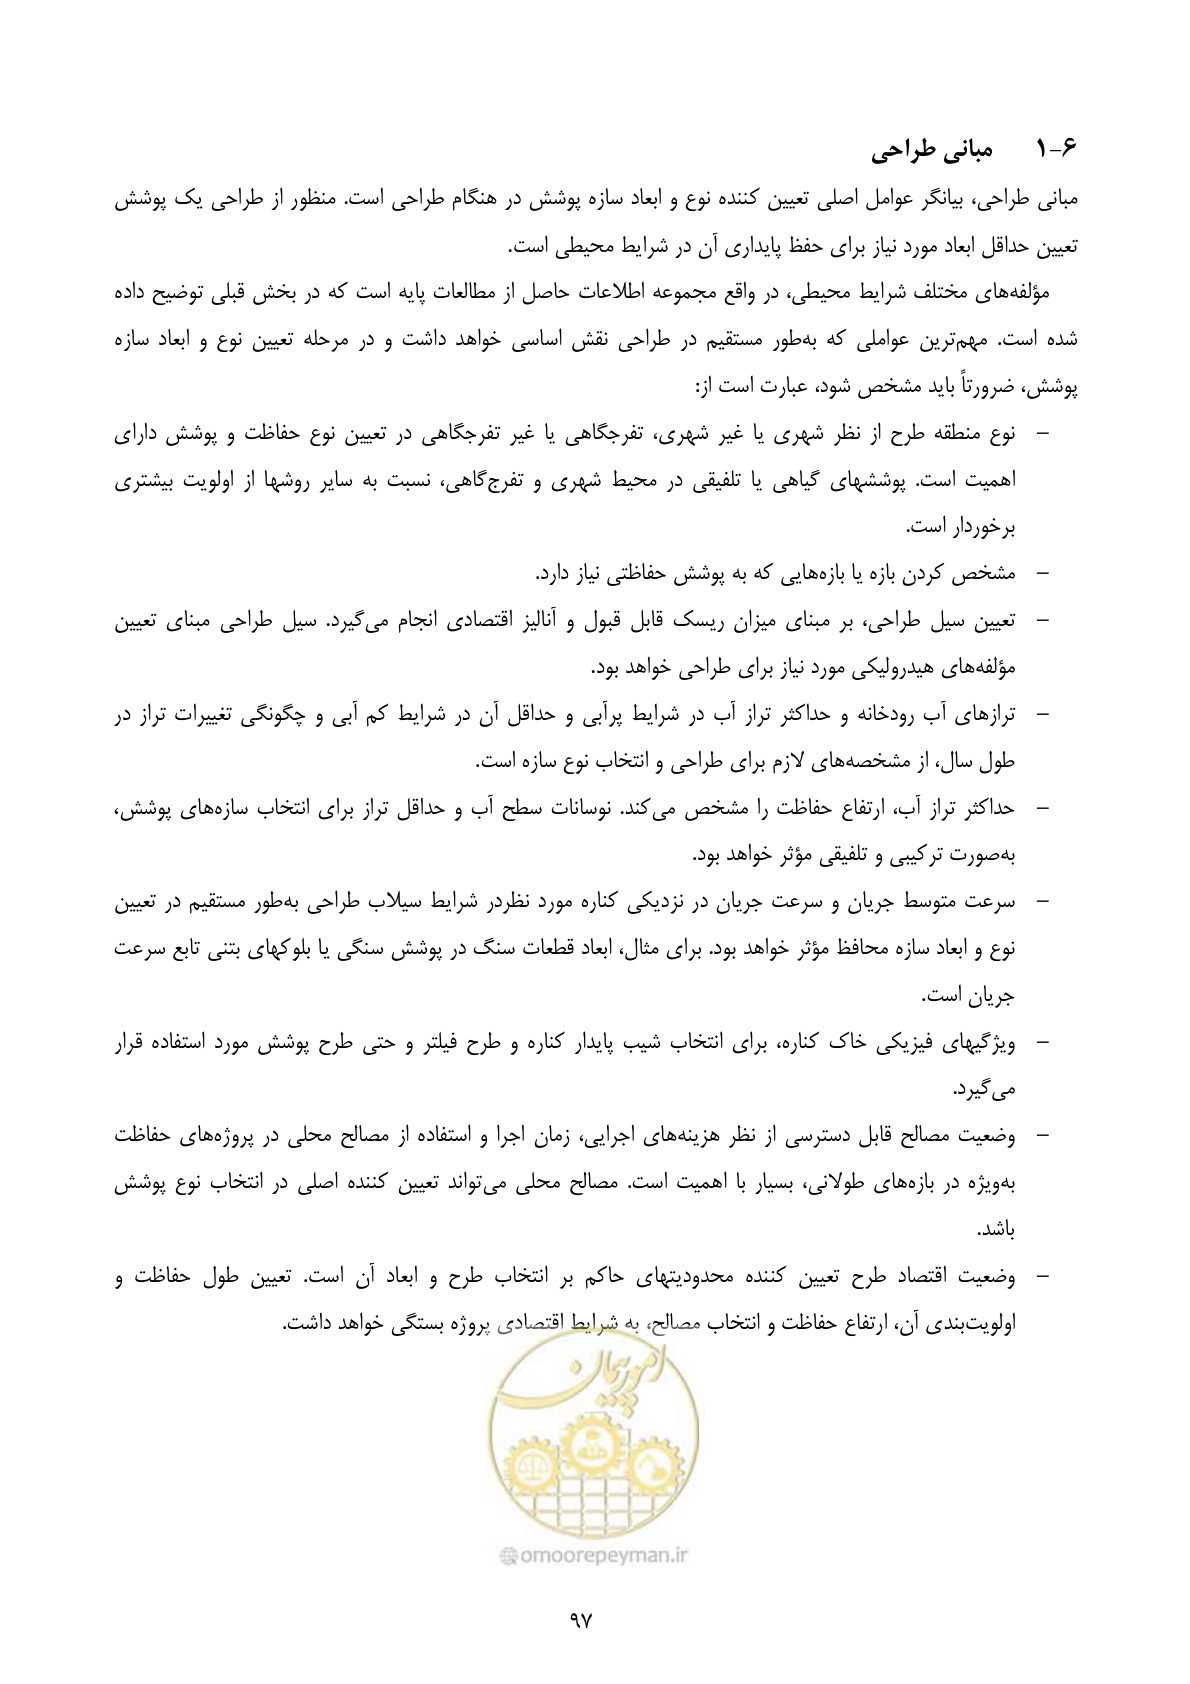 ۶-۱ مبانی طراحی
مبانی طراحی، بیانگر عوامل اصلی تعیین کننده نوع و ابعاد سازه پوشش در هنگام طراحی است. منظور از طراحی یک پوشش
تعیین حداقل ابعاد مورد نیاز برای حفظ پایداری آن در شرایط محیطی است.
مؤلفه‌های مختلف شرایط محیطی، در واقع مجموعه اطلاعات حاصل از مطالعات پایه است که در بخش قبلی توضیح داده
شده است. مهم‌ترین عواملی که به‌طور مستقیم در طراحی نقش اساسی خواهد داشت و در مرحله تعیین نوع و ابعاد سازه
پوشش، ضرورتاً باید مشخص شود، عبارت است از:
– نوع منطقه طرح از نظر شهری یا غیر شهری، تفرجگاهی یا غیر تفرجگاهی در تعیین نوع حفاظت و پوشش دارای
اهمیت است. پوششهای گیاهی یا تلفیقی در محیط شهری و تفرج‌گاهی، نسبت به سایر روشها از اولویت بیشتری
برخوردار است.
– مشخص کردن بازه یا بازه‌هایی که به پوشش حفاظتی نیاز دارد.
– تعیین سیل طراحی، بر مبنای میزان ریسک قابل قبول و آنالیز اقتصادی انجام می‌گیرد. سیل طراحی مبنای تعیین
مؤلفه‌های هیدرولیکی مورد نیاز برای طراحی خواهد بود.
– ترازهای آب رودخانه و حداکثر تراز آب در شرایط پرآبی و حداقل آن در شرایط کم آبی و چگونگی تغییرات تراز در
طول سال، از مشخصه‌های لازم برای طراحی و انتخاب نوع سازه است.
– حداکثر تراز آب، ارتفاع حفاظت را مشخص می‌کند. نوسانات سطح آب و حداقل تراز برای انتخاب سازه‌های پوشش،
به‌صورت ترکیبی و تلفیقی مؤثر خواهد بود.
– سرعت متوسط جریان و سرعت جریان در نزدیکی کناره مورد نظردر شرایط سیلاب طراحی به‌طور مستقیم در تعیین
نوع و ابعاد سازه محافظ مؤثر خواهد بود. برای مثال، ابعاد قطعات سنگ در پوشش سنگی یا بلوکهای بتنی تابع سرعت
جریان است.
– ویژگیهای فیزیکی خاک کناره، برای انتخاب شیب پایدار کناره و طرح فیلتر و حتی طرح پوشش مورد استفاده قرار
می‌گیرد.
– وضعیت مصالح قابل دسترسی از نظر هزینه‌های اجرایی، زمان اجرا و استفاده از مصالح محلی در پروژه‌های حفاظت
به‌ویژه در بازه‌های طولانی، بسیار با اهمیت است. مصالح محلی می‌تواند تعیین کننده اصلی در انتخاب نوع پوشش
باشد.
– وضعیت اقتصاد طرح تعیین کننده محدودیتهای حاکم بر انتخاب طرح و ابعاد آن است. تعیین طول حفاظت و
اولویت‌بندی آن، ارتفاع حفاظت و انتخاب مصالح، به شرایط اقتصادی پروژه بستگی خواهد داشت.
امور پیمان
@omoorepeyman.ir
۹۷